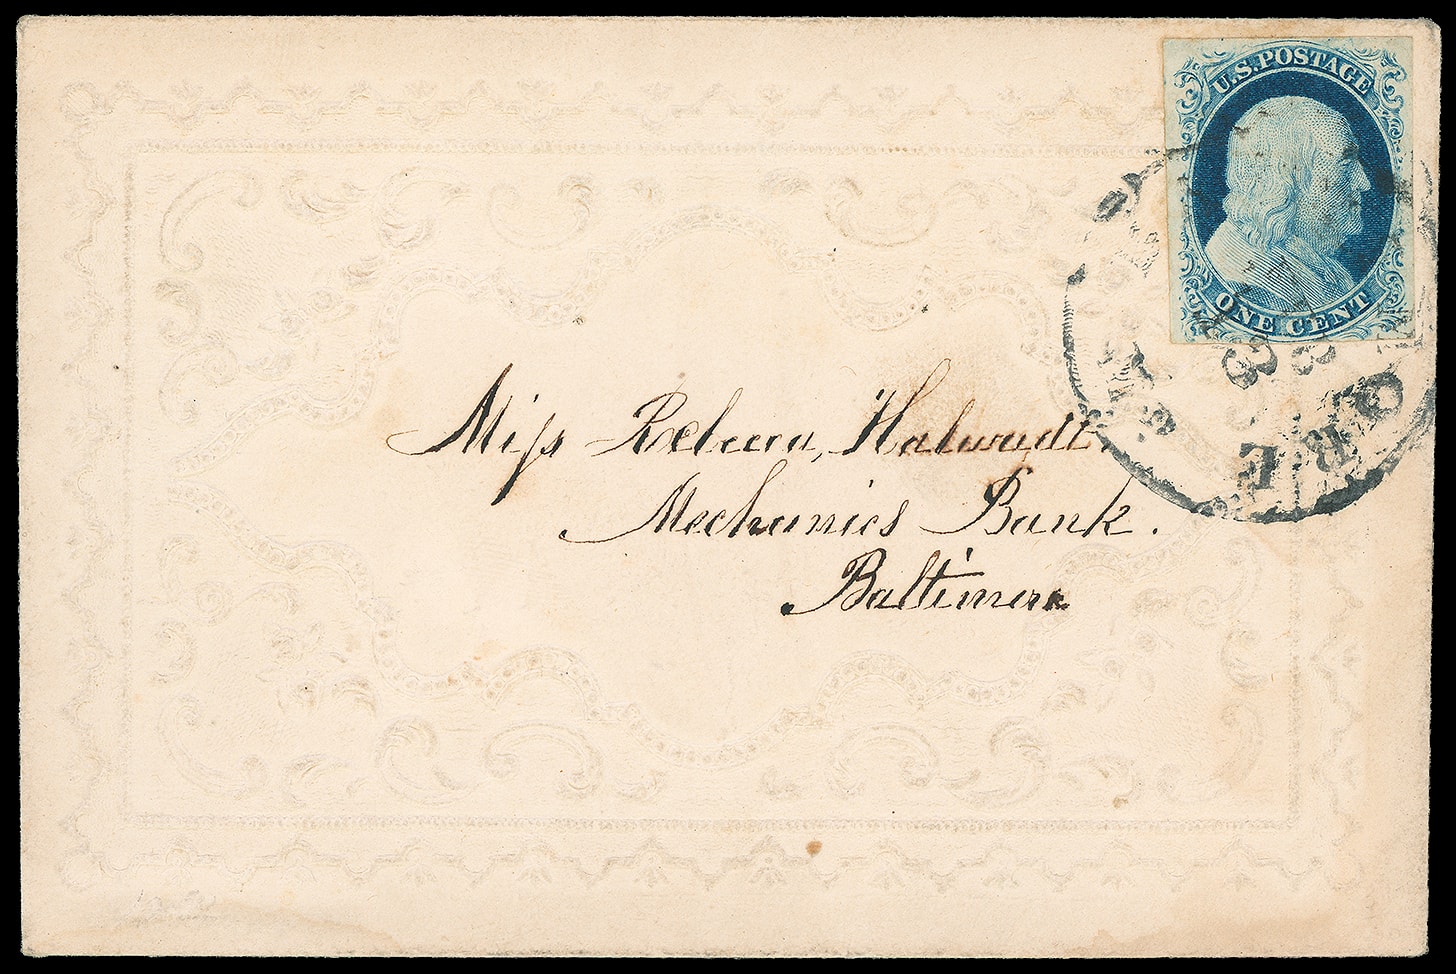 U.S. POSTAGE
ONE CENT
Miss Rebecca, Halwadt.
Mechanics Bank.
Baltimore
ORE